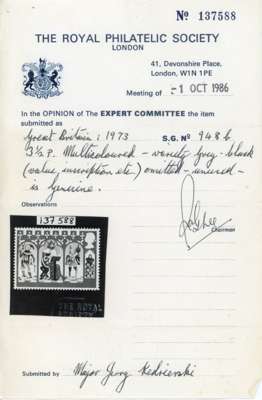 Nº 137588
THE ROYAL PHILATELIC SOCIETY
LONDON
41, Devonshire Place,
London, W1N 1PE
Meeting of -1 OCT 1986
In the OPINION of The EXPERT COMMITTEE the item
submitted as
Great Britain: 1973 S.G. Nº 948b
3½p. Multicoloured - variety Grey-black
(value, inscription etc.) omitted - unused -
is genuine.
Observations
Chairman
137588
THE ROYAL
LONDON
Submitted by Major Georg